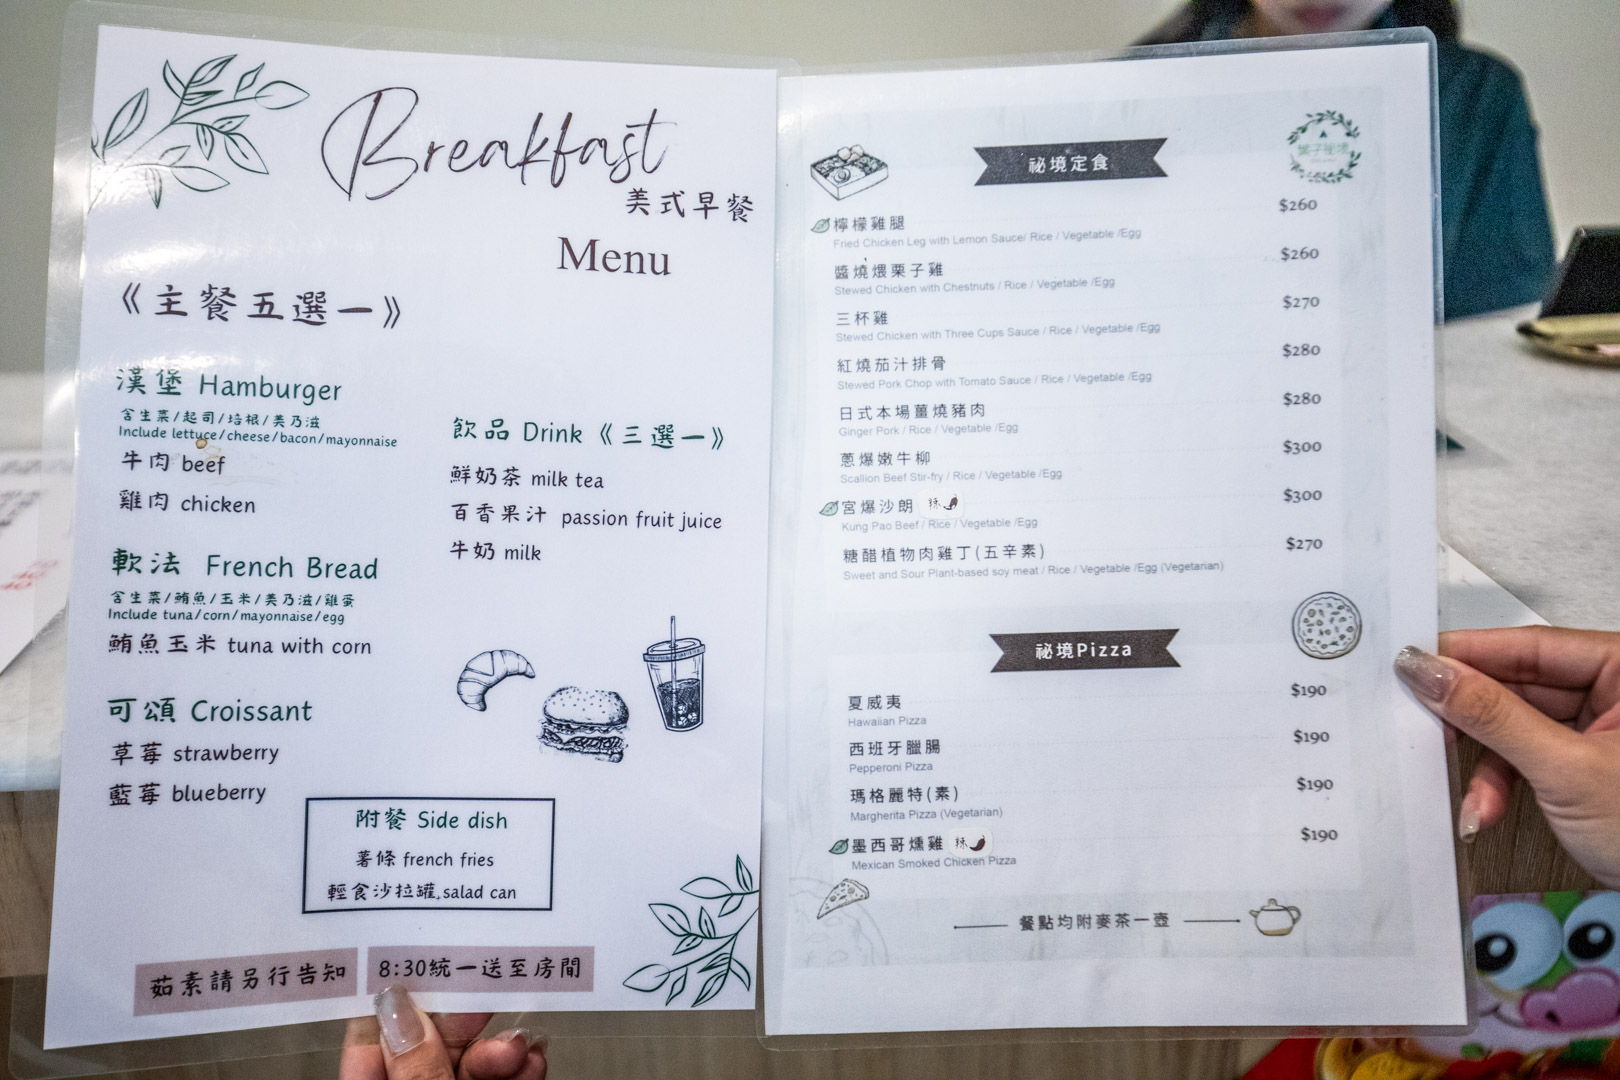 Breakfast
美式早餐
Menu
《主餐五選一》
漢堡 Hamburger
含生菜/起司/培根/美乃滋
Include lettuce/cheese/bacon/mayonnaise
牛肉 beef
雞肉 chicken
軟法 French Bread
含生菜/鮪魚/玉米/美乃滋/雞蛋
Include tuna/corn/mayonnaise/egg
鮪魚玉米 tuna with corn
可頌 Croissant
草莓 strawberry
藍莓 blueberry
飲品 Drink《三選一》
鮮奶茶 milk tea
百香果汁 passion fruit juice
牛奶 milk
附餐 Side dish
薯條 french fries
輕食沙拉罐 salad can
茹素請另行告知
8:30統一送至房間
祕境定食
葉子祕境
檸檬雞腿 $260
Fried Chicken Leg with Lemon Sauce/ Rice / Vegetable /Egg
醬燒煨栗子雞 $260
Stewed Chicken with Chestnuts / Rice / Vegetable /Egg
三杯雞 $270
Stewed Chicken with Three Cups Sauce / Rice / Vegetable /Egg
紅燒茄汁排骨 $280
Stewed Pork Chop with Tomato Sauce / Rice / Vegetable /Egg
日式本場薑燒豬肉 $280
Ginger Pork / Rice / Vegetable /Egg
蔥爆嫩牛柳 $300
Scallion Beef Stir-fry / Rice / Vegetable /Egg
宮爆沙朗 辣 $300
Kung Pao Beef / Rice / Vegetable /Egg
糖醋植物肉雞丁(五辛素) $270
Sweet and Sour Plant-based soy meat / Rice / Vegetable /Egg (Vegetarian)
祕境Pizza
夏威夷 $190
Hawaiian Pizza
西班牙臘腸 $190
Pepperoni Pizza
瑪格麗特(素) $190
Margherita Pizza (Vegetarian)
墨西哥燻雞 辣 $190
Mexican Smoked Chicken Pizza
餐點均附麥茶一壺